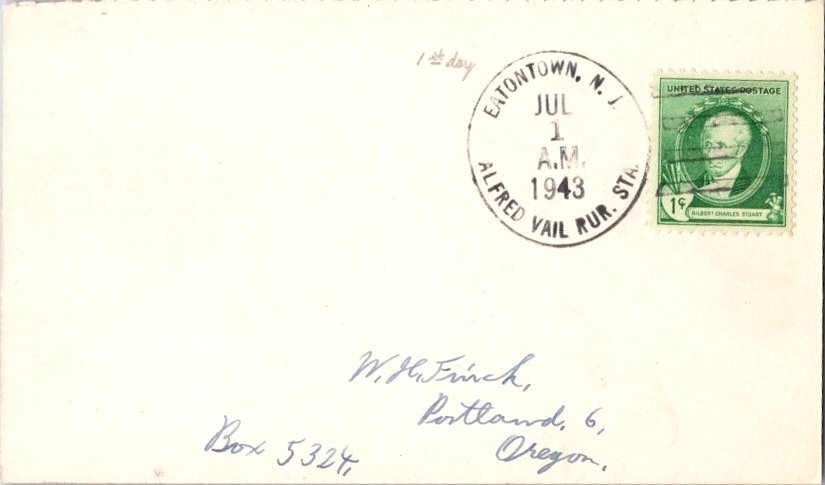 1st day
EATONTOWN, N. J.
JUL
1
A.M.
1943
ALFRED VAIL RUR. STA.
UNITED STATES POSTAGE
1¢
GILBERT CHARLES STUART
W. H. Finck,
Portland, 6,
Box 5324, Oregon.